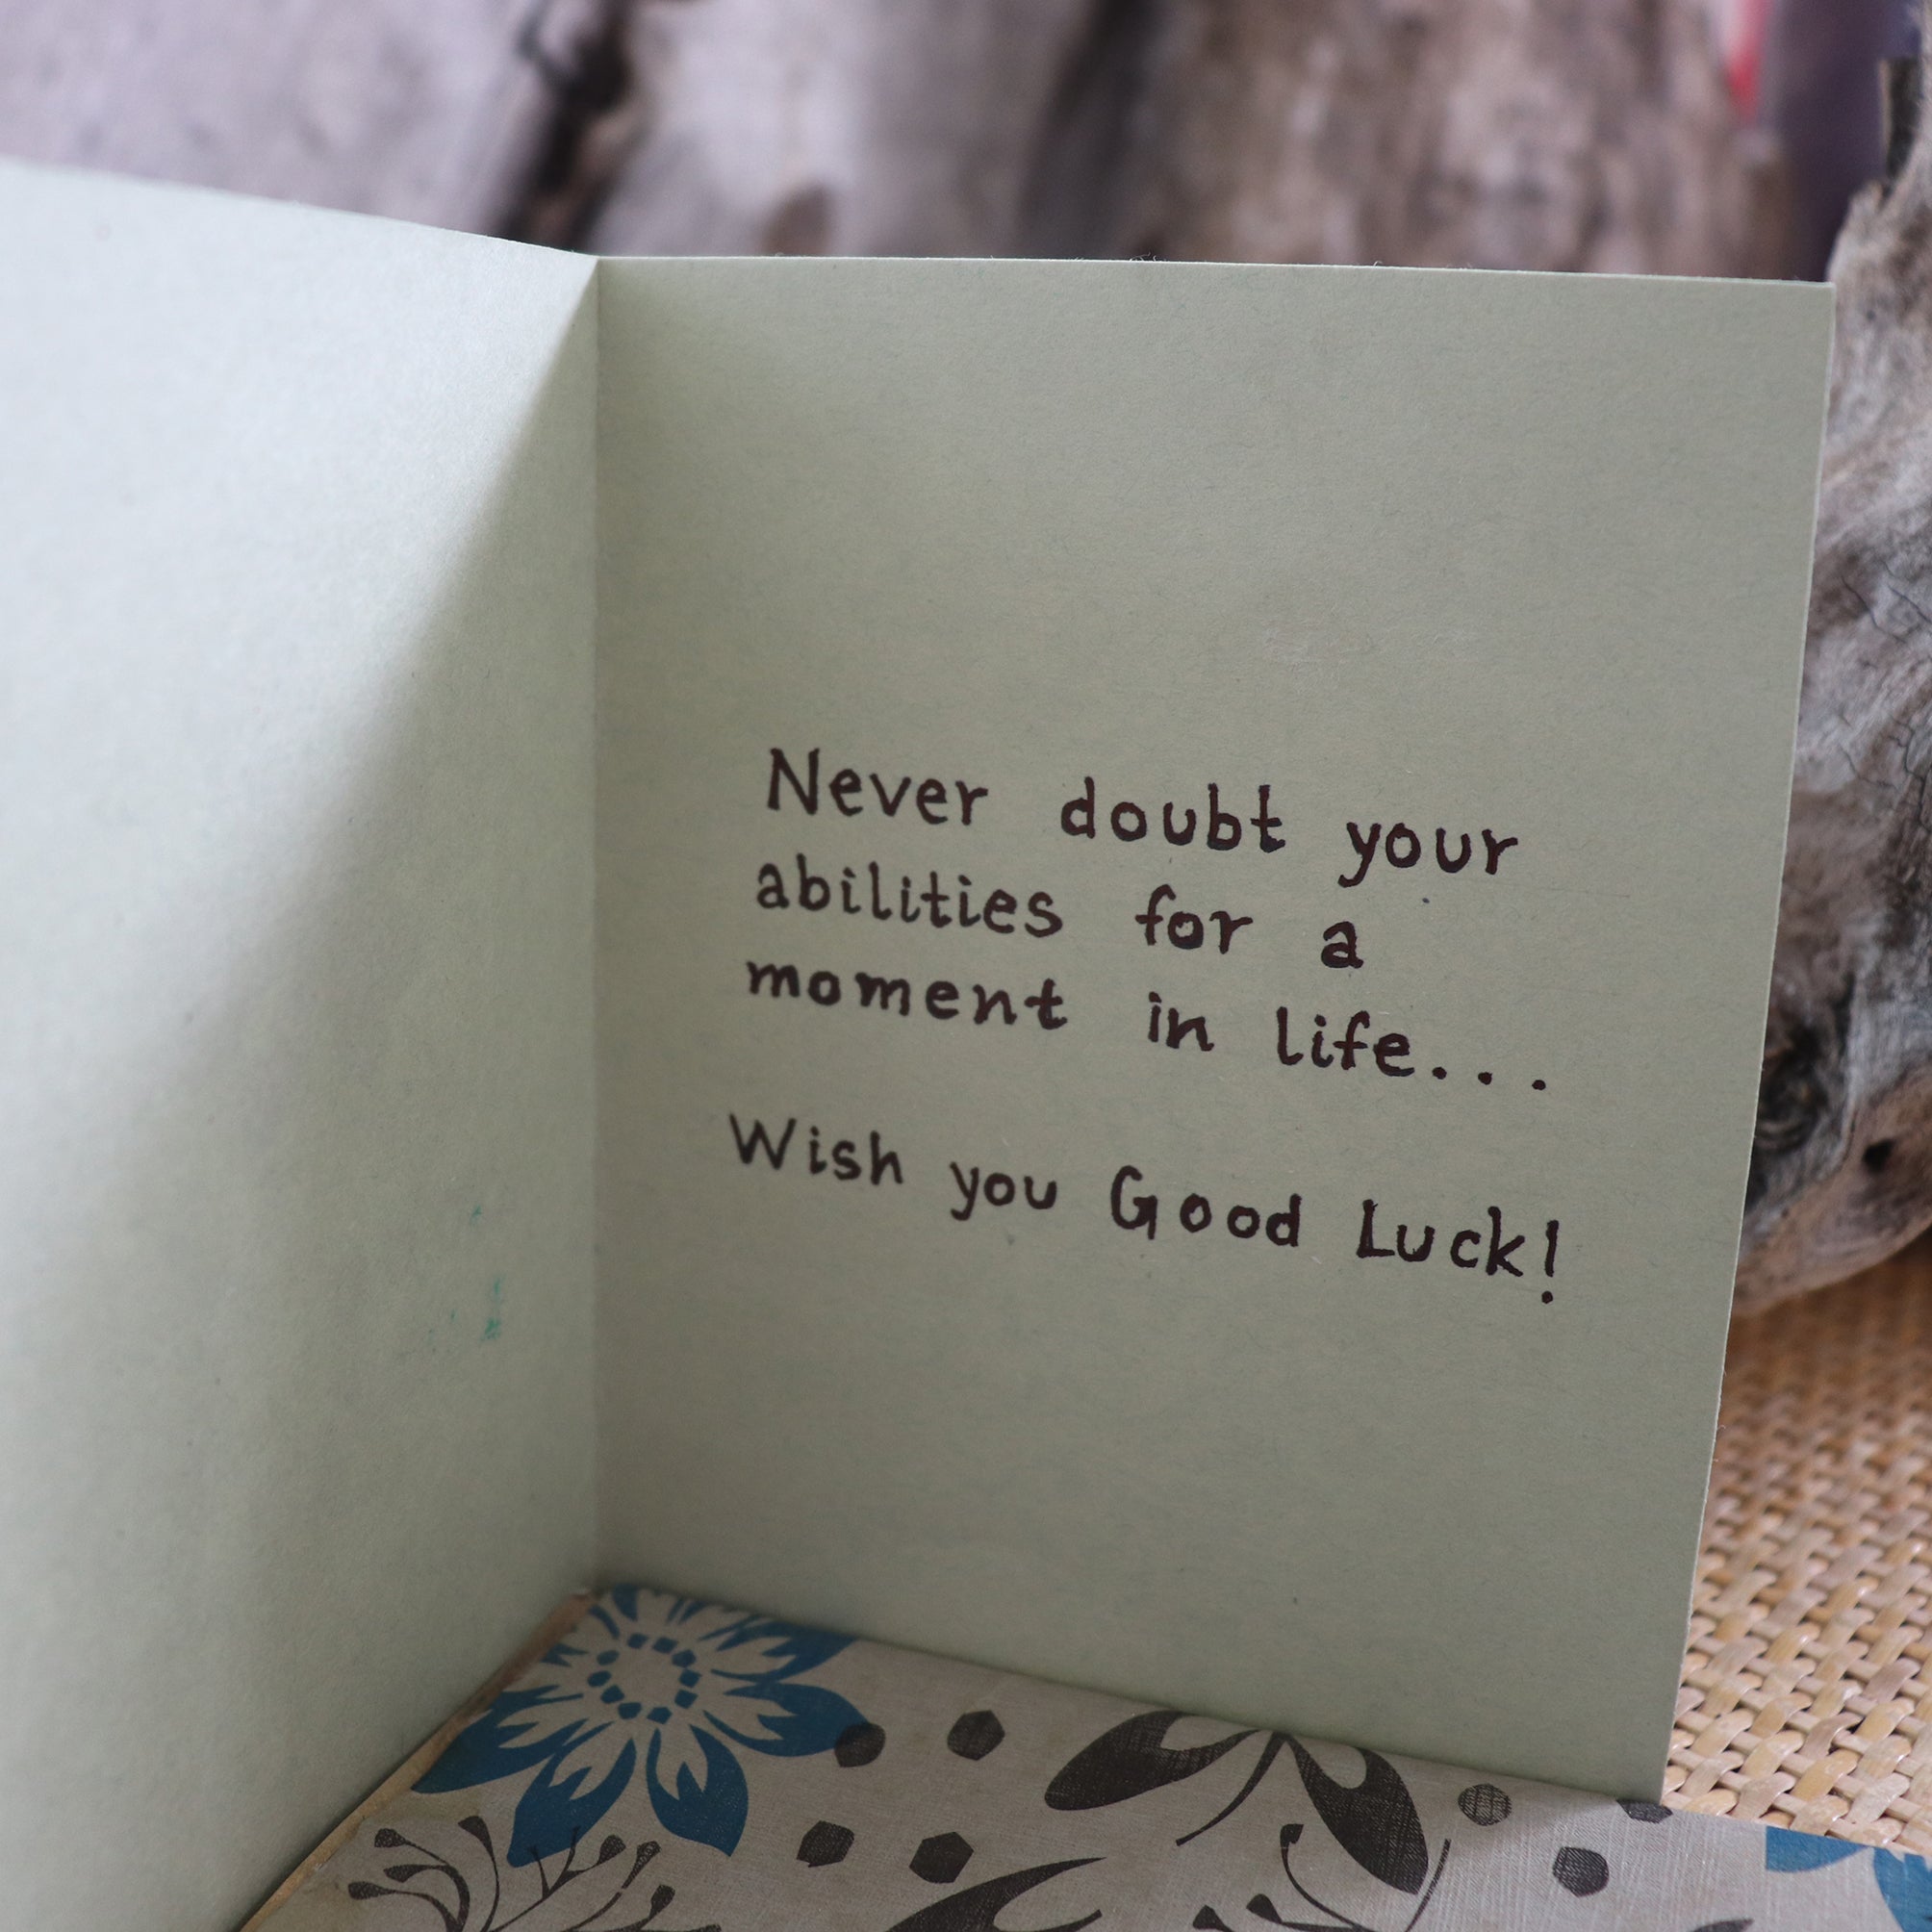 Never doubt your
abilities for a
moment in life...
Wish you Good Luck!